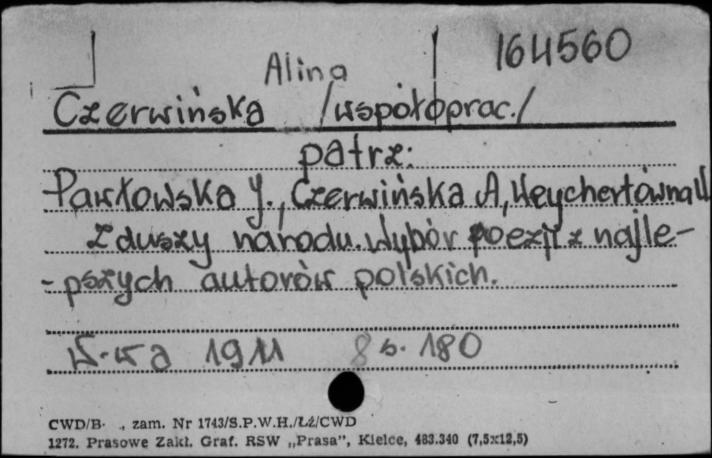 164560
Alina
Czerwińska /współoprac./
patrz:
Pawłowska J., Czerwińska A, Weychertówna W
Z duszy narodu. Wybór poezji z najle-
-pszych autorów polskich.
W-wa 1911 8 s. 180
CWD/B· ., zam. Nr 1743/S.P.W.H./Łź/CWD
1272. Prasowe Zakł. Graf. RSW „Prasa”, Kielce, 483.340 (7,5x12,5)